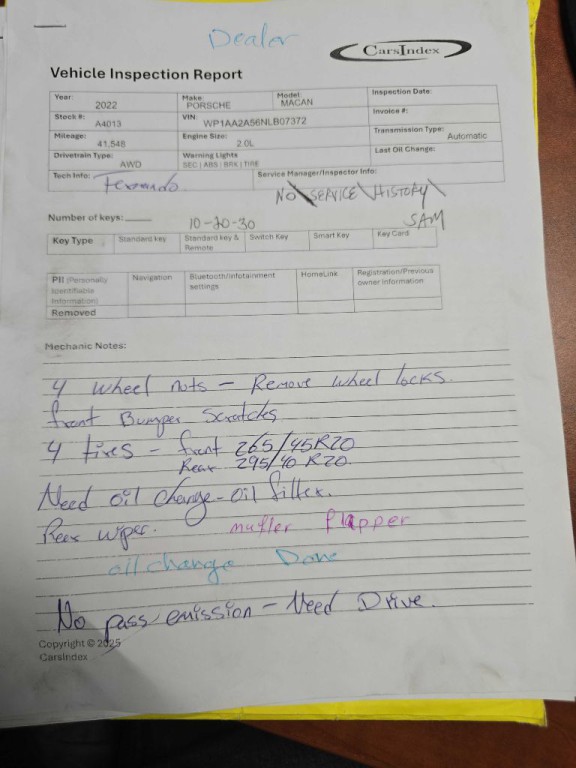 Dealer
CarsIndex
Vehicle Inspection Report
Year: 2022 Make: PORSCHE Model: MACAN Inspection Date:
Stock #: A4013 VIN: WP1AA2A56NLB07372 Invoice #:
Mileage: 41,548 Engine Size: 2.0L Transmission Type: Automatic
Drivetrain Type: AWD Warning Lights SEC | ABS | BRK | TIRE Last Oil Change:
Tech Info: Fernando Service Manager/Inspector Info:
NO SERVICE HISTORY
Number of keys: 10-20-30 SAM
Key Type Standard key Standard key & Remote Switch Key Smart Key Key Card
PII (Personally Identifiable Information) Navigation Bluetooth/Infotainment settings HomeLink Registration/Previous owner Information
Removed
Mechanic Notes:
4 wheel nuts - Remove wheel locks.
front Bumper Scratches
4 tires - front 265/45R20
Rear 295/40 R20.
Need oil change - oil filter.
Rear wiper. mufler flapper
oil change Done
No pass emission - Need Drive.
Copyright © 2025
CarsIndex